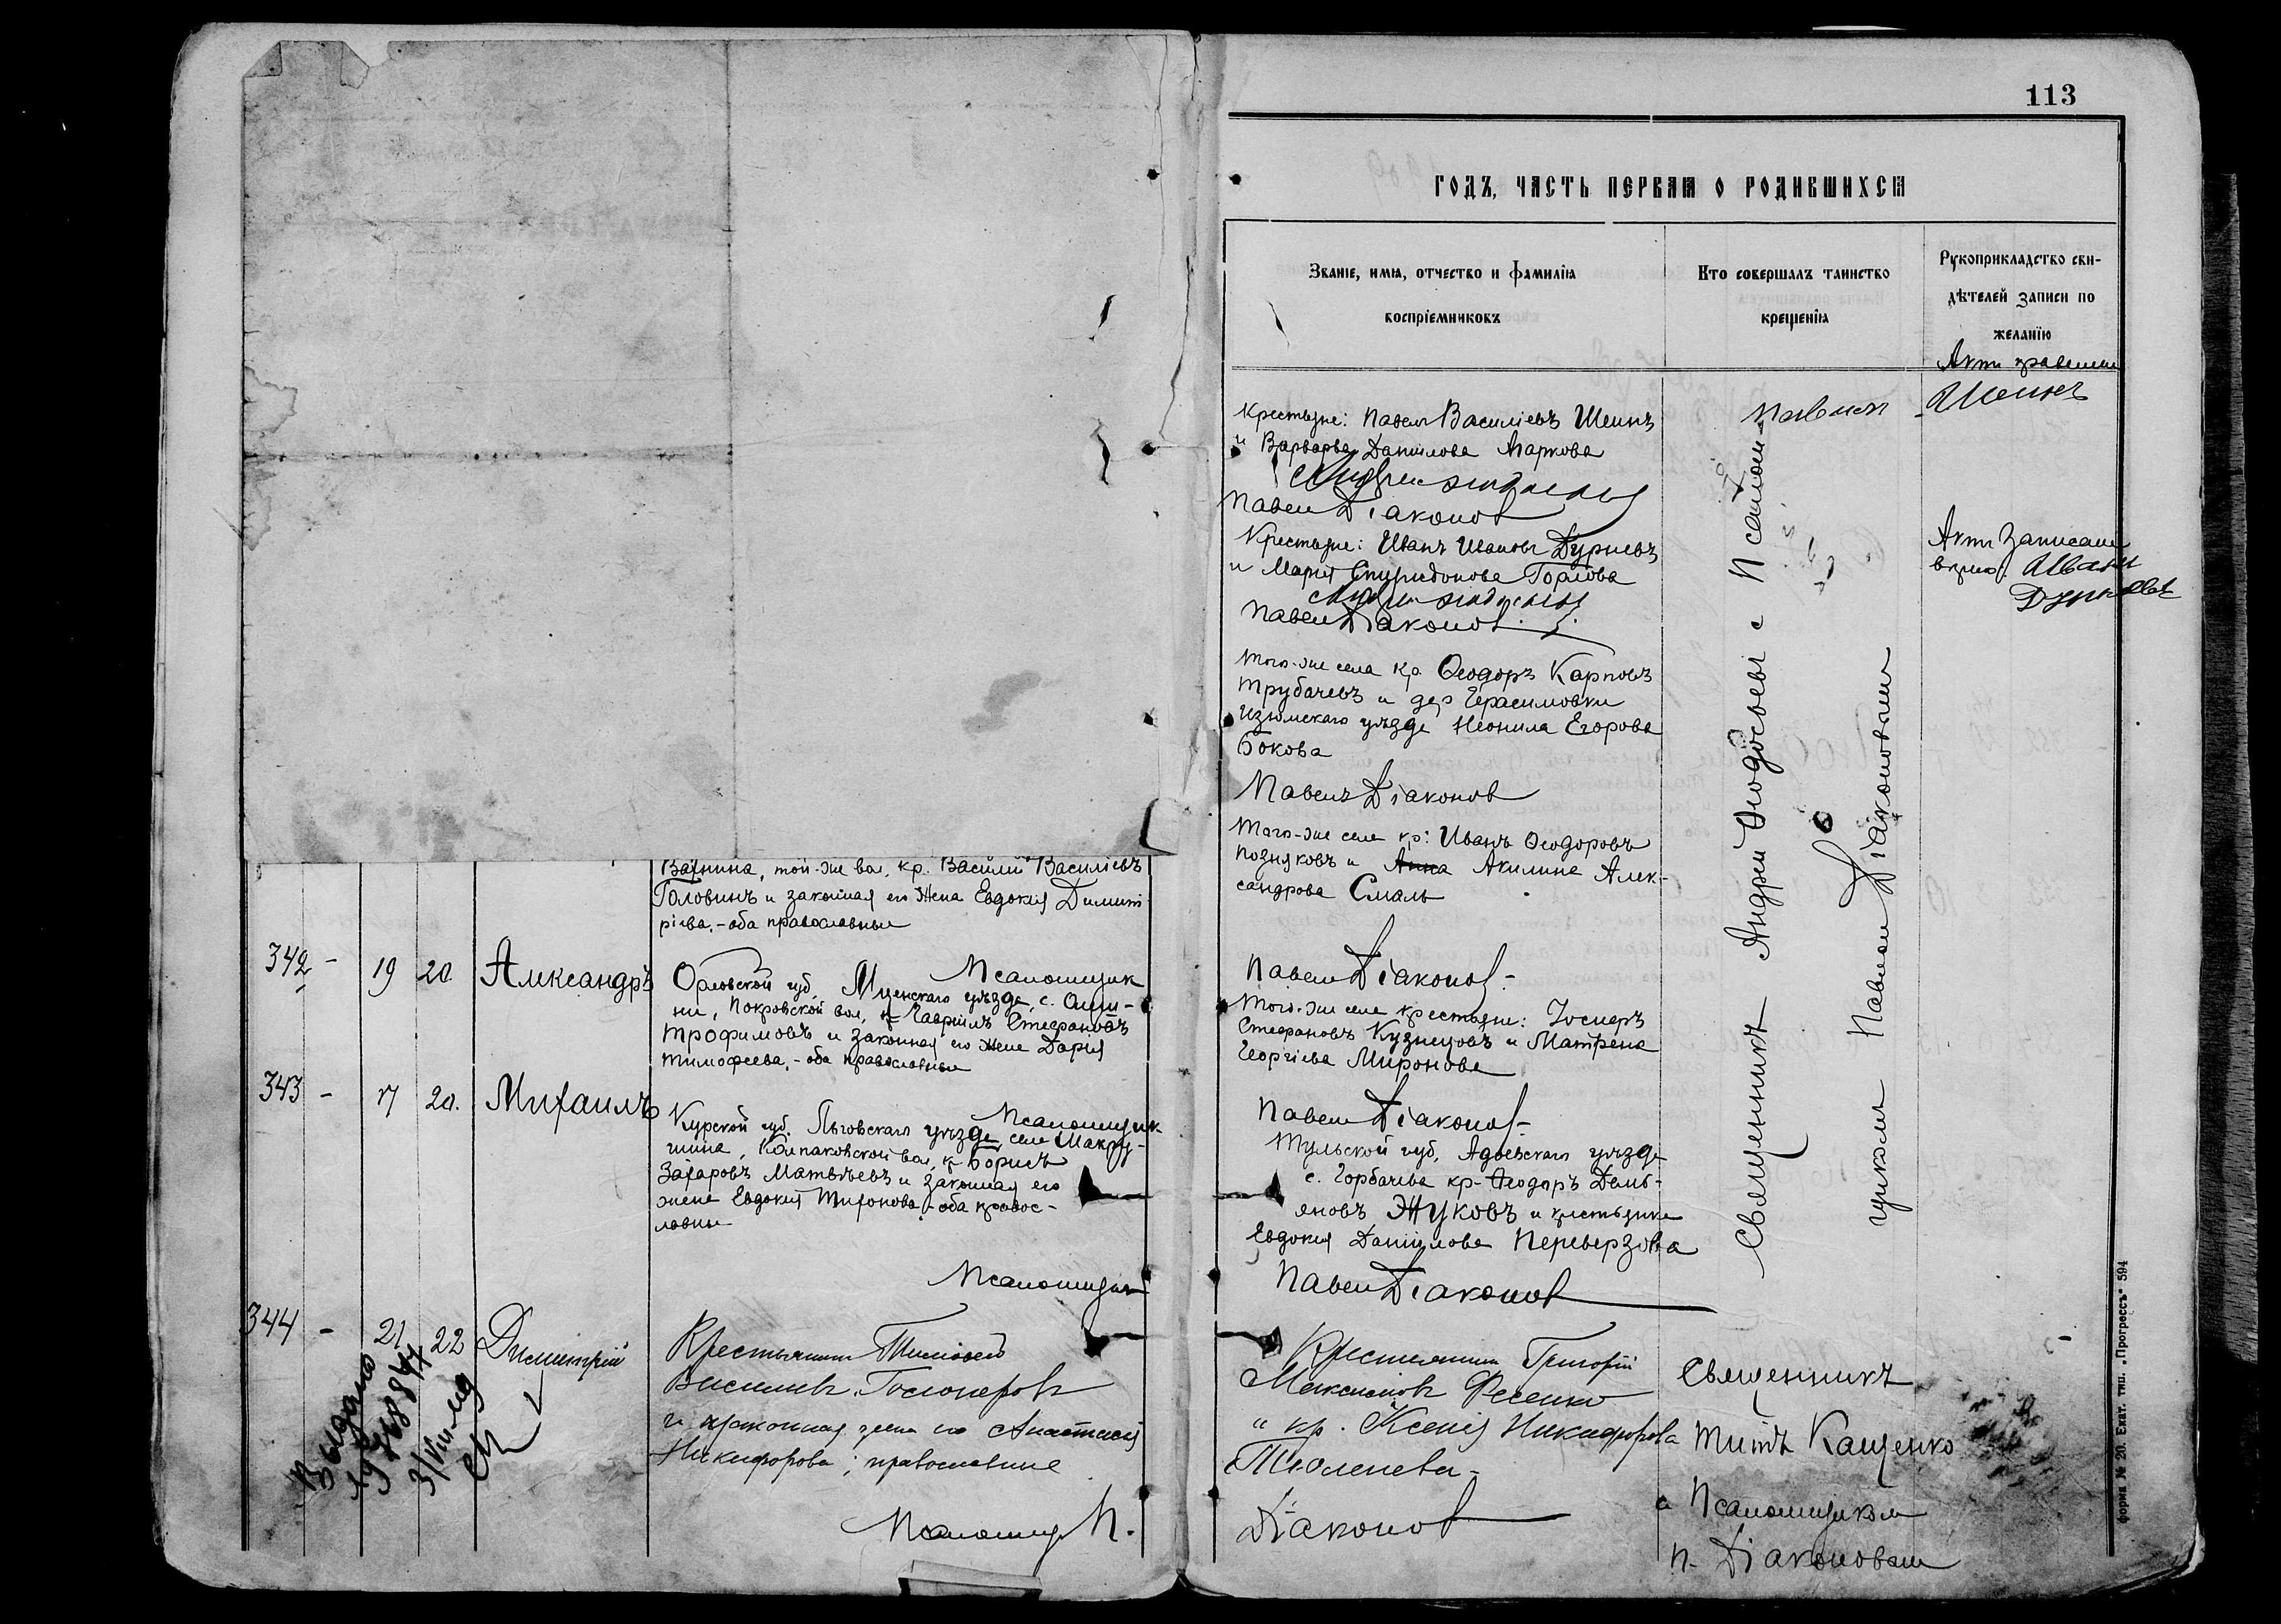 Вахнина, той-же вол. кр. Василий Василіевъ
Головинъ и законная его жена Евдокія Димит-
ріева, - оба православные
342 - 19 20 Александръ
Псаломщик
Орловской губ. Мценскаго уѣзда, с.
Покровской вол, кр Гавріилъ Стефановъ
Трофимовъ и законная его жена Дарія
Тимофеева, - оба православные
343 - 17 20. Михаилъ
Псаломщик
Курской губ. Льговскаго уѣзда, села
Колпаковской вол, кр Борисъ
Захаровъ Матвѣевъ и законная его
жена Евдокія Тихонова, - оба правос-
лавные
Псаломщик
344 - 21 22 Димитрій
Крестьянинъ Тимофей
Василіевъ
и законная жена его Анастасія
Никифорова; православные
Псаломщ П.
Выдано
3/VIII
113
ГОДЪ, ЧАСТЬ ПЕРВАЯ О РОДИВШИХСЯ
Званіе, имя, отчество и фамилія
воспріемниковъ
Кто совершалъ таинство
крещенія
Рукоприкладство сви-
дѣтелей записи по
желанію
Крестьяне: Павелъ Василіевъ Шеинъ
и Варвара Даніилова Агаркова
Павелъ Діаконов
Крестьяне: Иванъ Ивановъ Дурневъ
и Марія Спиридонова Горлова
Павелъ Діаконов.
Того-же села кр. Ѳеодоръ Карповъ
Трубачевъ и дер Герасимовки
Изюмскаго уѣзда Неонила Егорова
Бокова
Павелъ Діаконов
Того-же села кр: Иванъ Ѳеодоровъ
Позняковъ и Анна Акилина Алек-
сандрова Смаль
Павелъ Діаконов-
Того-же села крестьяне: Іосифъ
Стефановъ Кузнецовъ и Матрена
Георгіева Миронова
Павелъ Діаконов-
Тульской губ, уѣзда
с. Горбачева кр- Ѳеодоръ Демь-
яновъ Жуковъ и крестьянка
Евдокія Даніилова Переверзова
Павелъ Діаконов
Крестьянинъ Григорій
Максимовъ Фесенко
и кр. Ксенія Никифорова
Тюленева-
Діаконов
Священникъ Андрей Ѳеодосьевъ с Псалом-
щикомъ Павломъ Діаконовым
Священникъ
Титъ Кащенко
с Псаломщиком
П. Діаконовым
Павелъ Шеинъ
Актъ записан
вѣрно. Иванъ
Дурневъ
форма № 20. Екат. тип. „Прогрессъ" 594